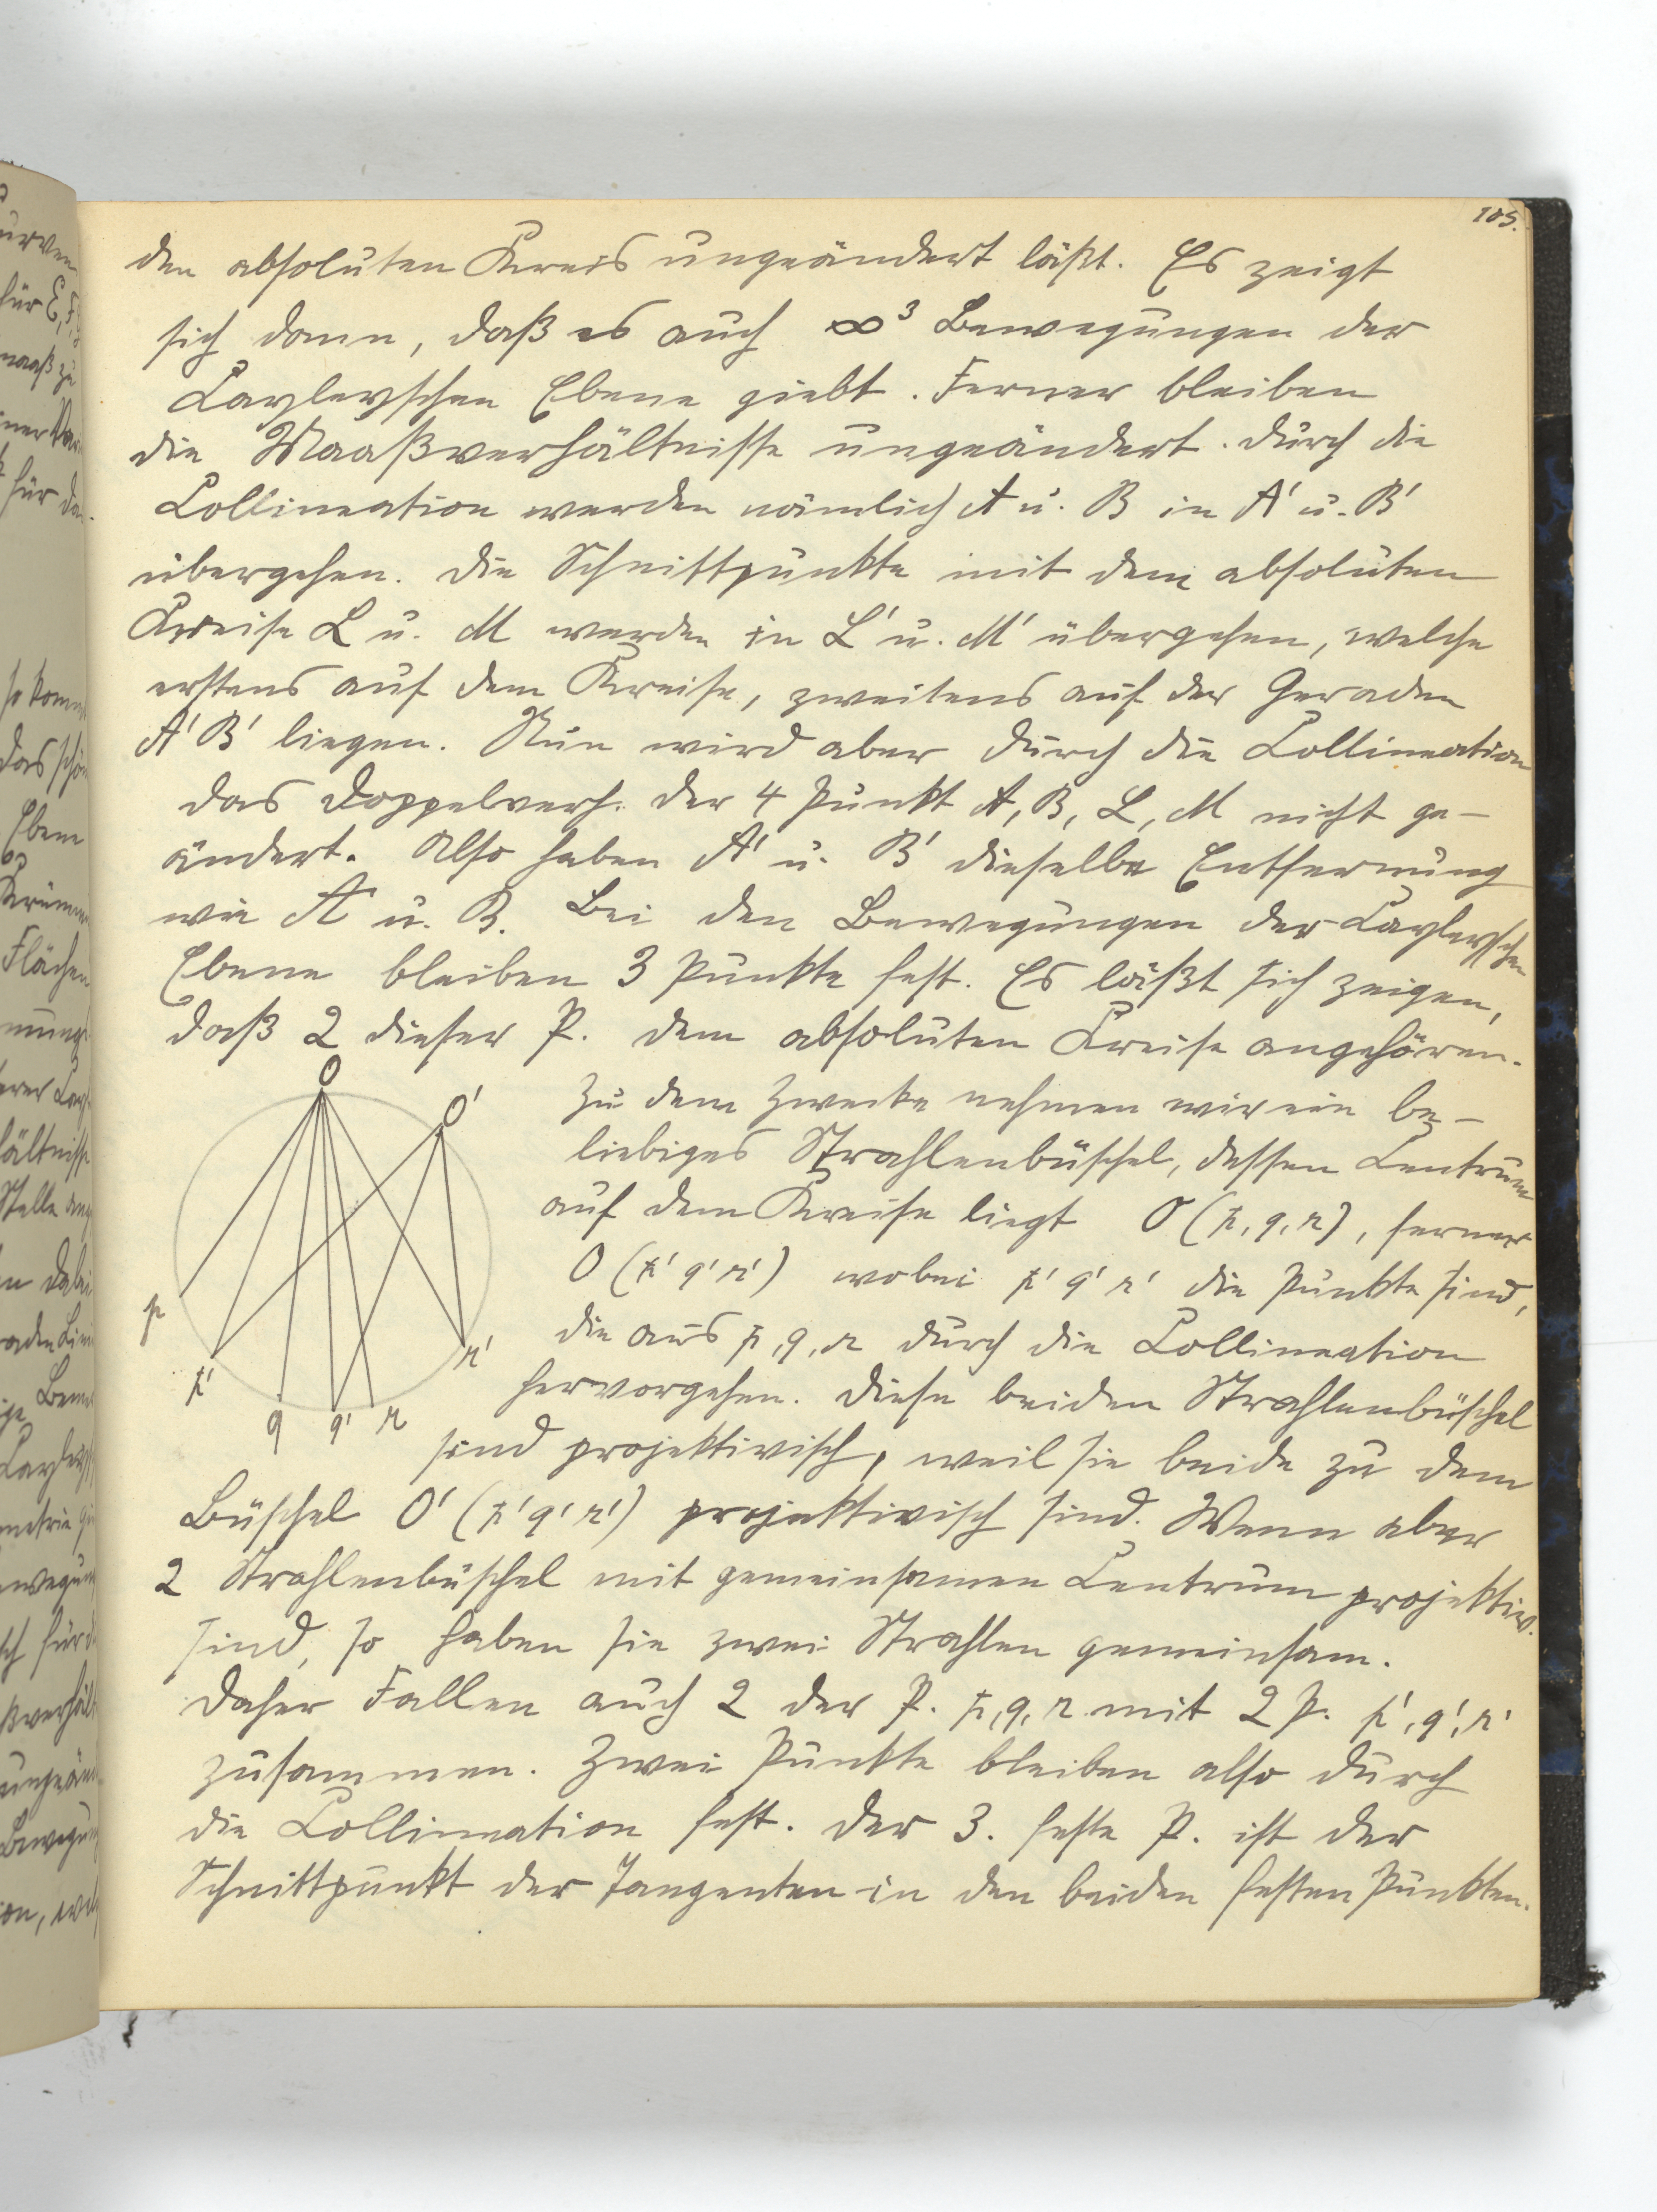 105.
den absoluten Kreis ungeändert läßt. Es zeigt
sich dann, daß es auch ∞³ Bewegungen der
Cayleyschen Ebene giebt. Ferner bleiben
die Maaßverhältnisse ungeändert. Durch die
Collineation werden nämlich A u. B in A' u. B'
übergehen. Die Schnittpunkte mit dem absoluten
Kreise L u. M werden in L' u. M' übergehen, welche
erstens auf dem Kreise, zweitens auf der Geraden
A'B' liegen. Nun wird aber durch die Collineation
das Doppelverh. der 4 Punkt A, B, L, M nicht ge-
ändert. Also haben A' u. B' dieselbe Entfernung
wie A u. B. Bei den Bewegungen der Cayleyschen
Ebene bleiben 3 Punkte fest. Es läßt sich zeigen,
daß 2 dieser P. dem absoluten Kreise angehören.
O
O'
p
p'
q
q'
r
r'
Zu dem Zwecke nehmen wir ein be-
liebiges Strahlenbüschel, dessen Centrum
auf dem Kreise liegt O (p, q, r), ferner
O (p' q' r') wobei p' q' r' die Punkte sind,
die aus p, q, r durch die Collineation
hervorgehen. Diese beiden Strahlenbüschel
sind projektivisch, weil sie beide zu dem
Büschel O' (p' q' r') projektivisch sind. Wenn aber
2 Strahlenbüschel mit gemeinsamen Centrum projektiv.
sind, so haben sie zwei Strahlen gemeinsam.
Daher Fallen auch 2 der P. p, q, r mit 2 P. p', q', r'
zusammen. Zwei Punkte bleiben also durch
die Collineation fest. Der 3. feste P. ist der
Schnittpunkt der Tangenten in den beiden festen Punkten.